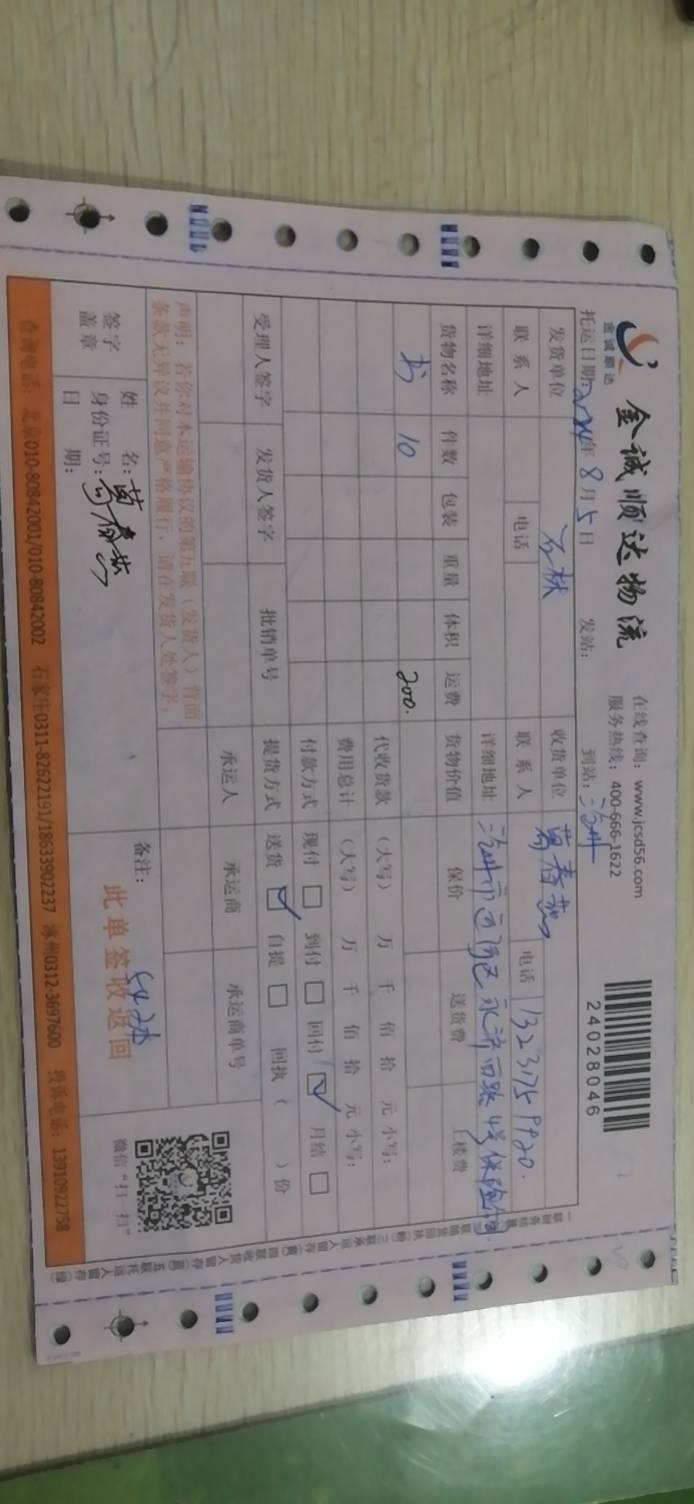 金诚顺达
金诚顺达物流
在线查询：www.jcsd56.com
服务热线：400-666-1622
24028046
托运日期：2024年 8月5日 发站： 到站：沧州
发货单位 收货单位
联系人 电话 联系人 电话 13231759920.
详细地址 详细地址 沧州市运河区永济西路4号保险
货物名称 件数 包装 重量 体积 运费 货物价值 保价 送货费 上楼费
书 10 200.
代收货款 （大写） 万 仟 佰 拾 元 小写：
费用总计 （大写） 万 仟 佰 拾 元 小写：
付款方式 现付 □ 到付 □ 回付 ☑ 月结 □
受理人签字 发货人签字 批销单号 提货方式 送货 ☑ 自提 □ 回执（ ）份
承运人 承运商 承运商单号
声明：若你对本运输协议的第五联（发货人）背面
条款无异议并同意严格履行，请在发货人处签字。
签字
盖章
姓 名：
身份证号：
日 期：
备注：
此单签收返回
微信“扫一扫”
查询电话：北京010-80842001/010-80842002 石家庄0311-82622191/18633902237 涿州0312-3697600 投诉电话：13910922758